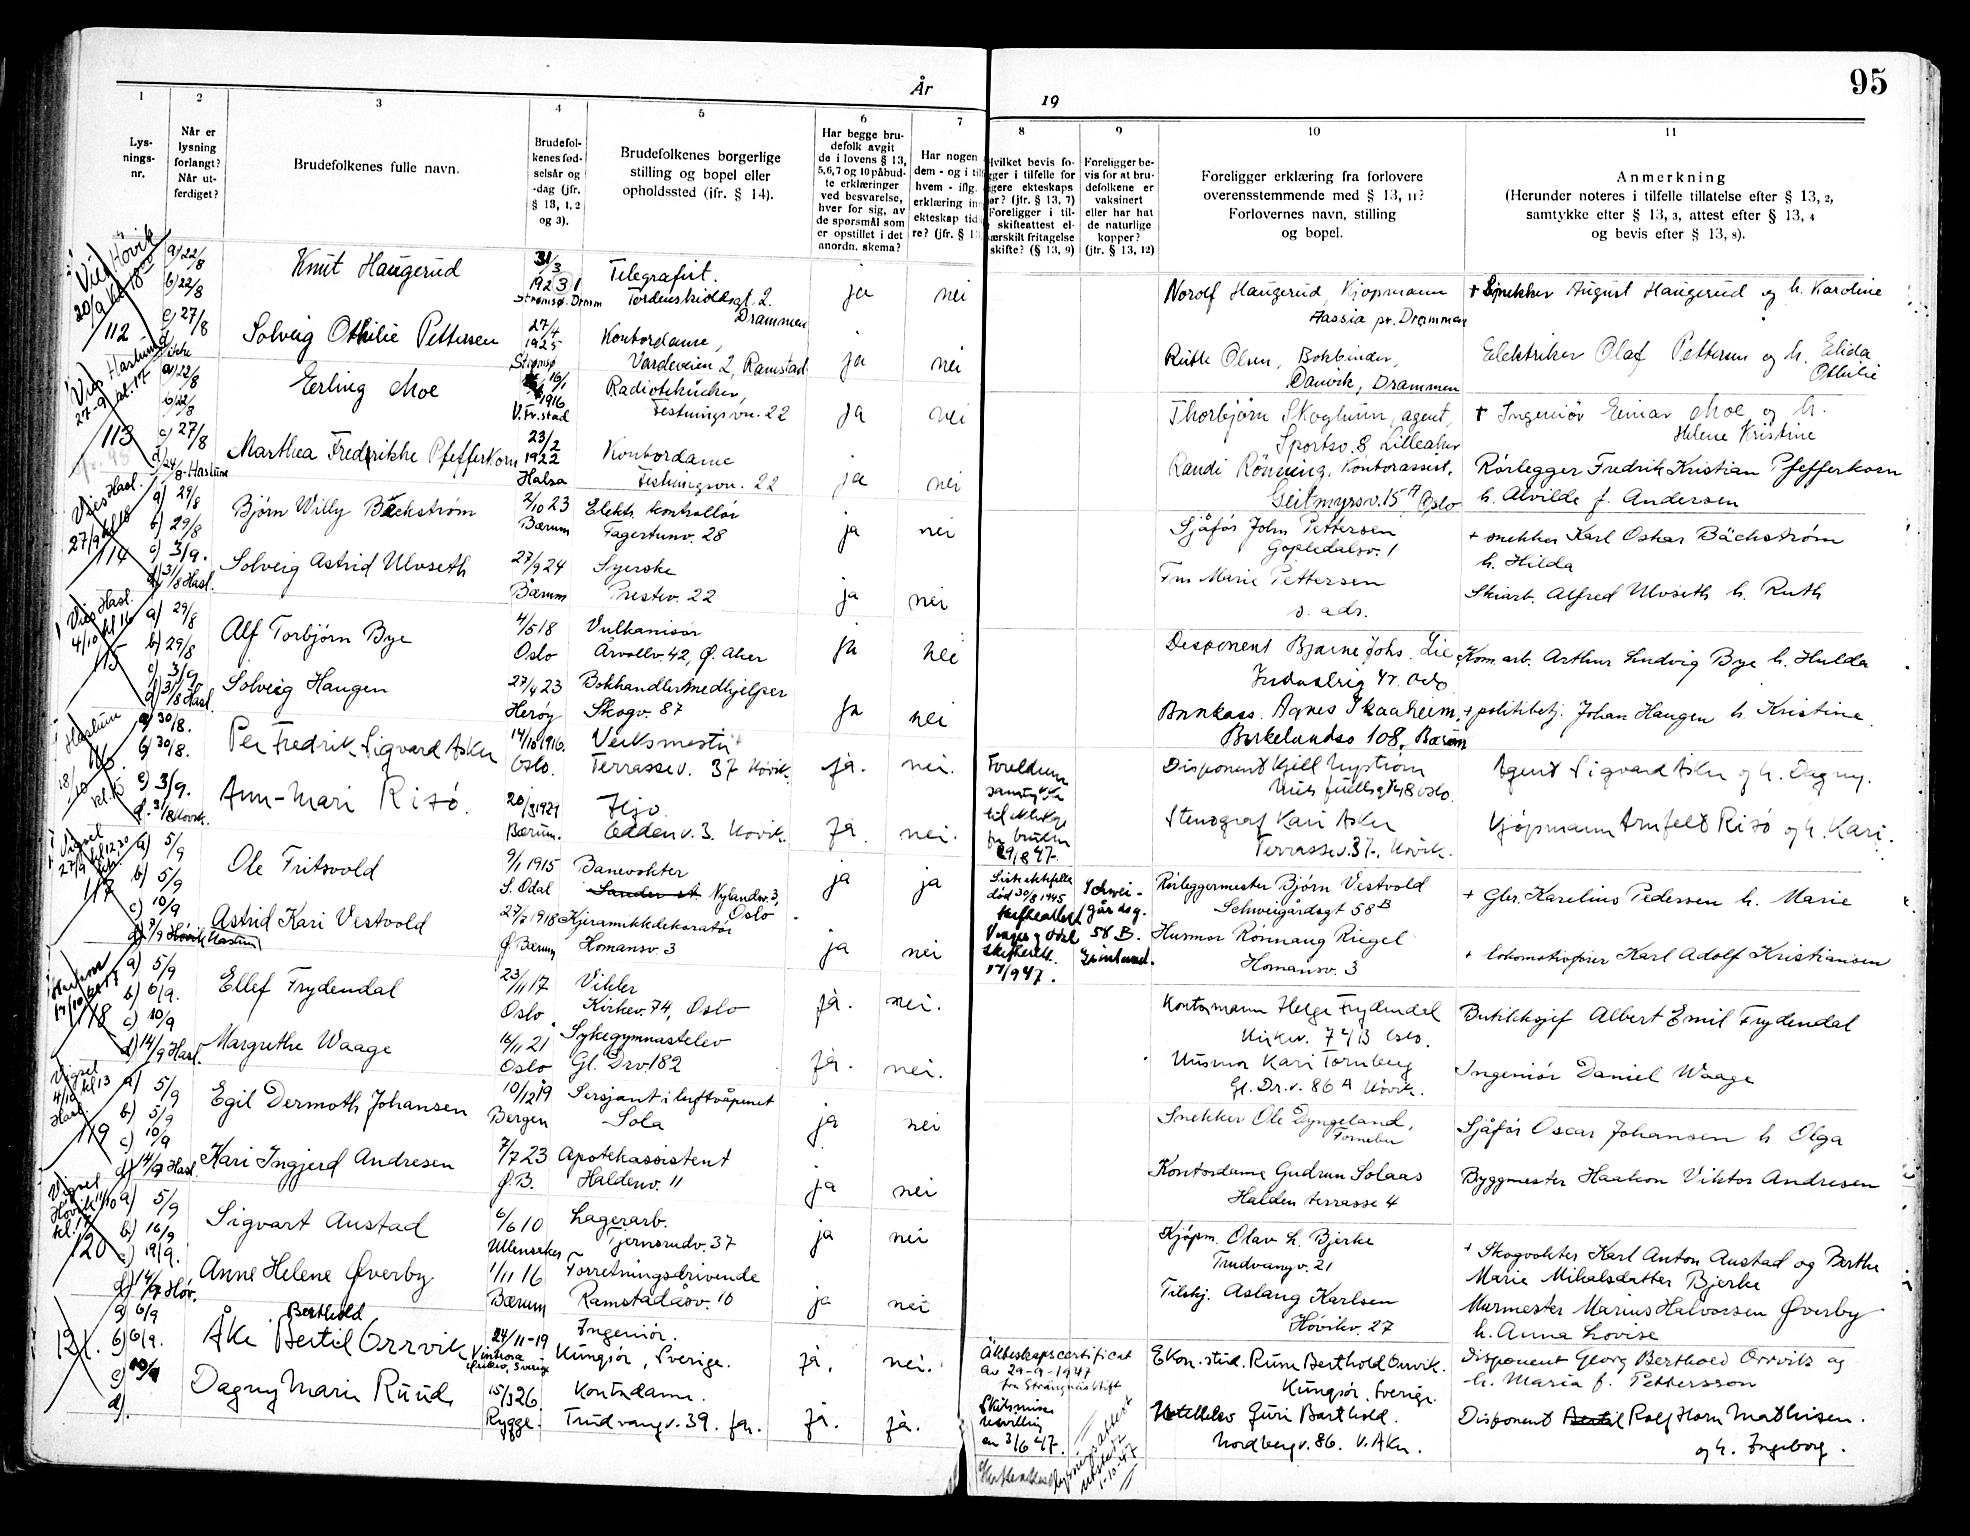 År
19
95
1
2
3
4
5
6
7
8
9
10
11
Lys-
nings-
nr.
Når er
lysning
forlangt?
Når ut-
ferdiget?
Brudefolkenes fulle navn.
Brudefol-
kenes fød-
selsår og
-dag (jfr.
§ 13, 1, 2
og 3).
Brudefolkenes borgerlige
stilling og bopel eller
opholdssted (ifr. § 14).
Har begge bru-
defolk avgit
de i lovens § 13,
5, 6, 7 og 10 påbud-
te erklæringer
ved besvarelse,
hver for sig, av
de spørsmål som
er opstillet i det
anordn. skema?
Har nogen
dem - og i til
hvem - iflg.
erklæring in
ekteskap tid
re? (jfr. § 1
Hvilket bevis fo-
gger i tilfelle for
gere ekteskaps
or? (jfr. § 13, 7)
Foreligger i til-
skifteattest el-
særskilt fritagelse
skifte? (§ 13, 9)
Foreligger be-
vis for at bru-
defolkene er
vaksinert
eller har hat
de naturlige
kopper?
(jfr. § 13, 12)
Foreligger erklæring fra forlovere
overensstemmende med § 13, 11?
Forlovernes navn, stilling
og bopel.
Anmerkning
(Herunder noteres i tilfelle tillatelse efter § 13, 2,
samtykke efter § 13, 3, attest efter § 13, 4
og bevis efter § 13, 8).
112
a) 22/8
b) 22/8
c) 27/8
Knut Haugerud
31/3
Telegrafist.
Tordenskioldsgt. 2.
Drammen
ja
nei
Norolf Haugerud, Kjøpmann
pr. Drammen
+ Snekker August Haugerud og h. Karoline
Solveig Othilie Pettersen
27/4
1925
Strømsø
Kontordame,
Vardeveien 2, Ramstad
ja
nei
Ruth Olsen, Bokbinder,
Danvik, Drammen
Elektriker Olaf Pettersen og h. Elida
Othilie
113
a) 22/8
b) 22/8
c) 27/8
d) 24/8 - Haslum
Erling Moe
16/1
1916
V. Fr.stad
Radiotekniker,
Festningsvn. 22
ja
nei
Thorbjørn Skoglunn, agent,
Sportsv. 8 Lilleaker
+ Ingeniør Einar Moe og h.
Helene Kristine
Marthea Fredrikke Pfefferkorn
23/2
1922
Halsa
Kontordame
Festningsvn. 22
ja
nei
Randi Rönning, Kontorassist.
Geitmyrsv. 15 A Oslo
Rørlegger Fredrik Kristian Pfefferkorn
h. Alvilde f. Andersen
Vies Hasl.
27/9 kl 18
114
a) 29/8
b) 29/8
c) 3/9.
d) 31/8 Hasl.
Bjørn Willy Bäckstrøm
2/10 23
Bærum
Elektr. kontrollør
Fagertunv. 28
ja
nei
Sjåfør John Pettersen
Gopledalsv. 1
+ snekker Karl Oskar Bäckstrøm
h. Hilda
Solveig Astrid Ulvseth
27/9 24
Bærum
Syerske
Prestev. 22
ja
nei
Fru Marie Pettersen
s. adr.
Skiarb. Alfred Ulvseth h. Ruth
Vies Hasl.
4/10 kl 16
115
a) 29/8
b) 29/8
c) 3/9
d) 31/8 Hasl.
Alf Torbjørn Bye
4/5 18
Oslo
Vulkanisør
Årvollv. 42, Ø. Aker
ja
nei
Disponent Bjarne Johs. Lie,
Kom. arb. Arthur Ludvig Bye h. Hulda
Solveig Haugen
27/4 23
Herøy
Bokhandlermedhjelper
Skogv. 87
ja
nei
Agnes Skaaheim,
Birkelundso 108, Bærum
+ politibetj. Johan Haugen h. Kristine
Haslum
18/10 kl. 15
116.
a) 30/8.
b) 30/8.
c) 3/9.
d. 31/8 Høvik.
Per Fredrik Sigvard Asker
14/10 1916.
Oslo.
Verksmester
Terrassev. 37 Høvik.
ja.
nei.
Disponent Kjell Nystrøm
Oslo.
Agent Sigvard Asker og h. Dagny.
Ann-Mari Risø.
20/8 1929
Bærum.
Eddenv. 3. Høvik.
ja.
nei.
Foreldrenes
samtykke
til ekteskap
for bruden
29/8 47.
Stenograf Kari Asker
Terrassev. 37, Høvik.
Kjøpmann Arnfelt Risø og h. Kari.
Vigsel
27/9 kl 12.30
117
a) 5/9
b) 5/9
c) 10/9
Ole Fritsvold
9/1 1915
S. Odal
Banevokter
Sander st. Nylandsv. 3,
Oslo
ja
ja
død 30/8 1945
17/9 47.
Schwei-
gårdsg.
58 B.
Rørleggermester Bjørn Vestvold
Schweigårdsgt 58 B
+ Gbr. Karelius Pedersen h. Marie
Astrid Kari Vestvold
27/7 1918
Ø Bærum
Kjeramikkdekoratør
Homansv. 3
ja
nei
Husmor Rønnaug Riegel
Homansv. 3
+ Lokomotivfører Karl Adolf Kristiansen
Haslum
118
a) 5/9
b) 6/9.
c) 10/9
d) 14/9 Hasl.
Ellef Frydendal
23/11 17
Oslo
Vikler
Kirkev. 74, Oslo
ja.
nei.
Kontormann Helge Frydendal
Kirkev. 74 B Oslo.
Butikksjef Albert Emil Frydendal
Margrethe Waage
16/11 21
Oslo
Sykegymnastelev
Gl. Drv. 182
ja.
nei.
Husmor Kari Tornberg
Gl. Dr. v. 86 A Høvik.
Ingeniør Daniel Waage
Vigsel
4/10 kl 13
Hasl.
119
a) 5/9
b) 5/9
c) 10/9
d) 14/9 Hasl
Egil Dermoth Johansen
10/12 19
Bergen
Sersjant i luftvåpenet
Sola
ja
nei
Snekker Ole Dyngeland,
Fornebu
Sjåfør Oscar Johansen h Olga
Kari Ingjerd Andresen
7/7 23
Ø. B.
Apotekassistent
Haldenv. 11
ja
nei
Kontordame Gudrun Solaas
Halden terrasse 4
Byggmester Haakon Viktor Andresen
Vigsel
Høvik 11/10
kl. 17
120
a) 5/9
b) 16/9
c) 19/9.
d) 14/9 Høv.
Sigvart Austad
6/6 10
Ullensaker
Lagerarb.
Tjernsrudv. 37
ja
nei
Kjøpm. Olav h. Bjerke
Trudvangv. 21
+ Skogvokter Karl Anton Austad og Berthe
Marie Mikalsdatter Bjerke
Anne Helene Øverby
1/11 16
Bærum
Forretningsdrivende
Ramstadåsv. 10
ja
nei
Tilskj. Aslaug Karlsen
Høvikv. 27
Murmester Marius Halvorsen Øverby
h. Anna Lovise
121.
a) 6/9
b) 6/9.
c) 10/9
d).
Berthold
Åke Bertil Orrvik
24/11-19
Sverige
Ingeniør.
Kungsör, Sverige.
ja.
nei.
Äktenskapscertificat
av 29-9-1947
fra Strängnäs stift
Ekon. stud. Rune Berthold Orrvik.
Kungsör. Sverige.
Disponent Georg Berthold Orrvik og
h. Maria f. Pettersson
Dagny Marie Ruud
15/3 26
Rygge.
Kontordame.
Trudvangv. 39. Ja.
ja.
ja.
Skilsmisse
bevilling
av 3/6 47.
Lysningsattest
utstedt
1-10-47
Guri Barthold.
Nordbergv. 86. V. Aker.
Disponent Bertil Rolf Horn Mathisen.
og h. Ingeborg.